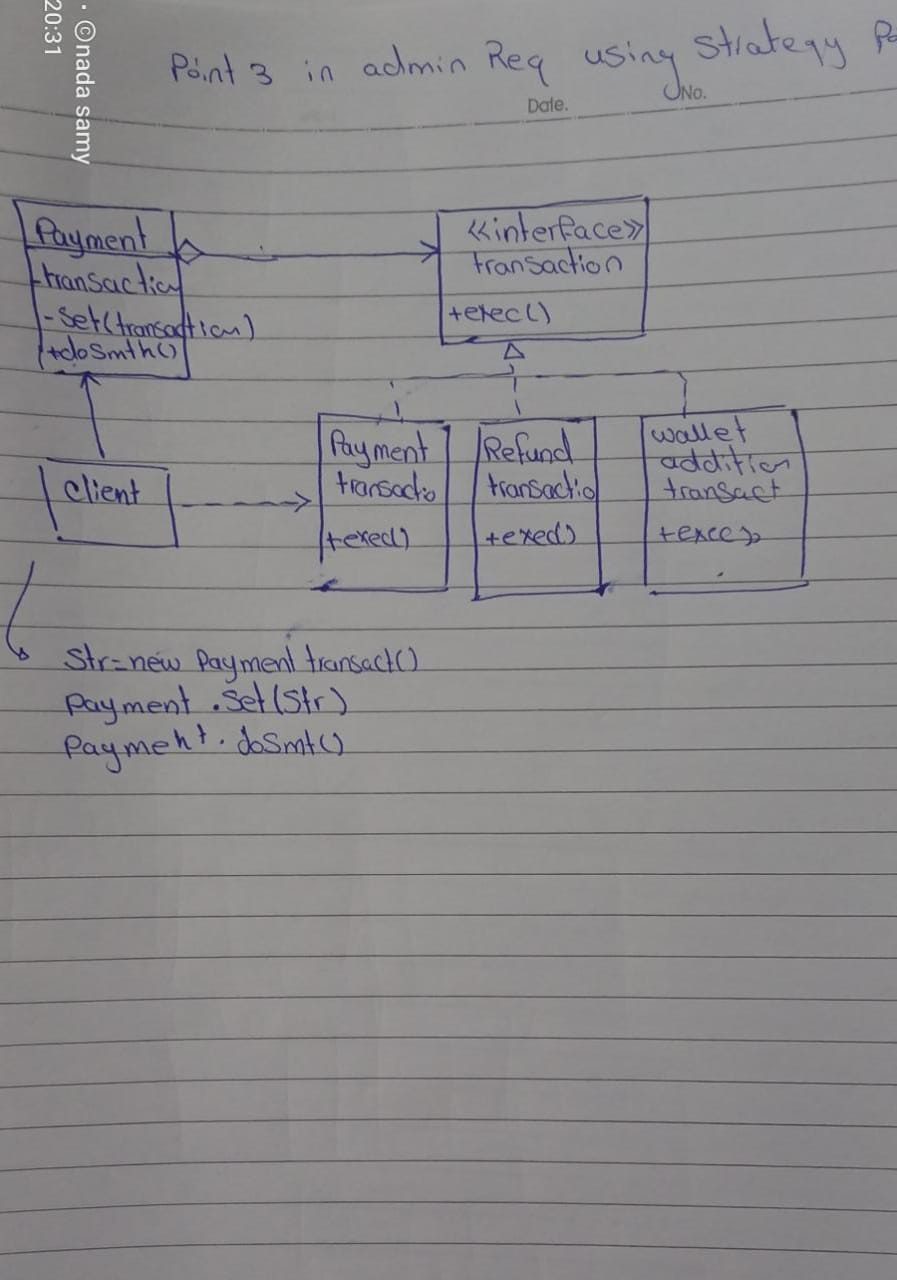 Point 3 in admin Req using Strategy
Date.
No.
20:31
. ©nada samy
Payment
transaction
- Set(transaction)
+doSmth()
<<interface>>
transaction
+exec()
Client
Payment
transactio
+exec()
Refund
transactio
+exec()
wallet
addition
transact
Str=new Payment transact()
Payment .Set(Str)
Payment . doSmt()